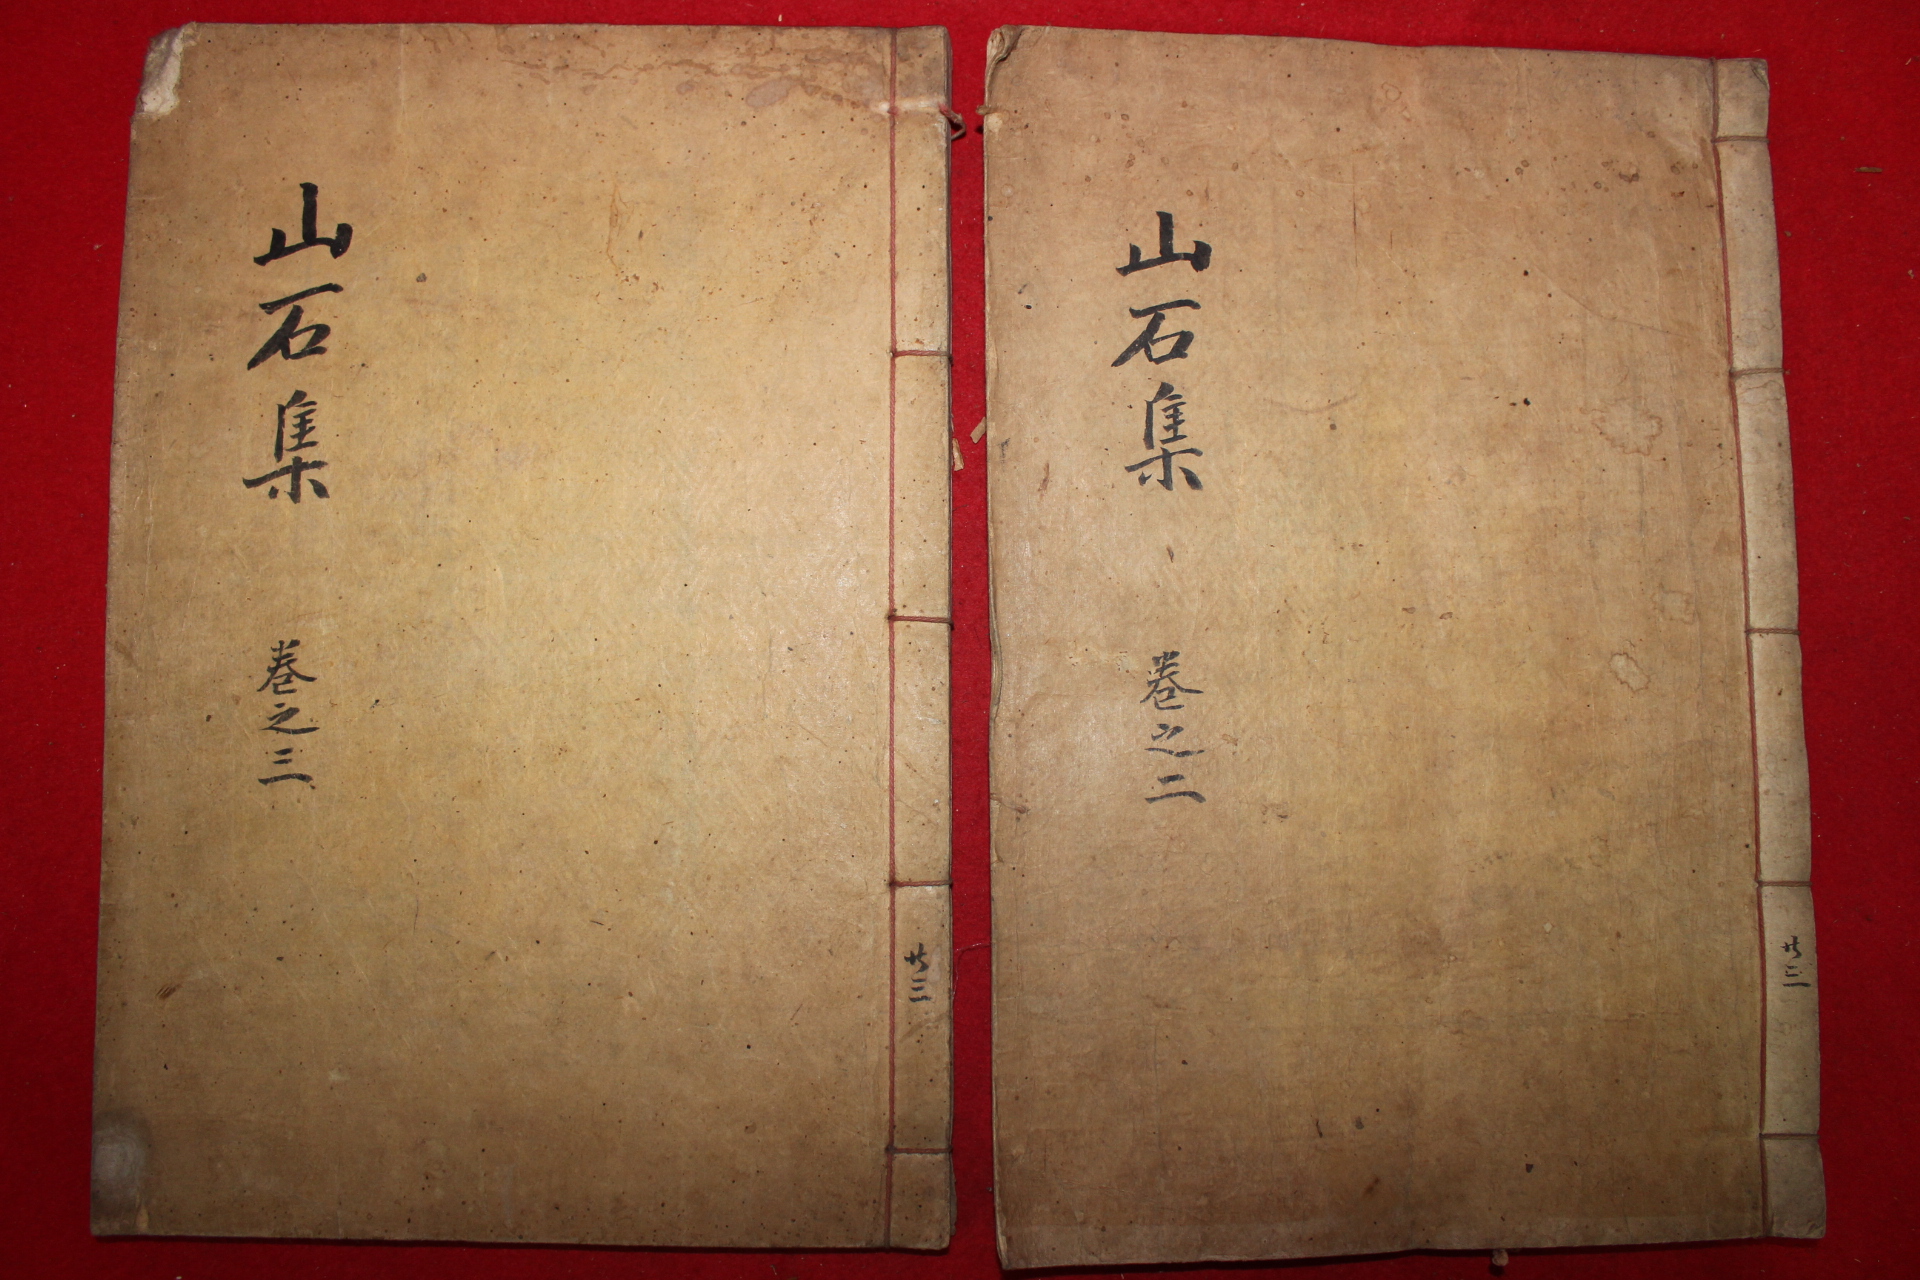 山石集
卷之二
共三
山石集
卷之三
共三